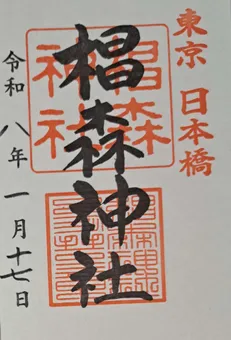 東京 日本橋
椙森神社
椙森神社
令和八年一月十七日